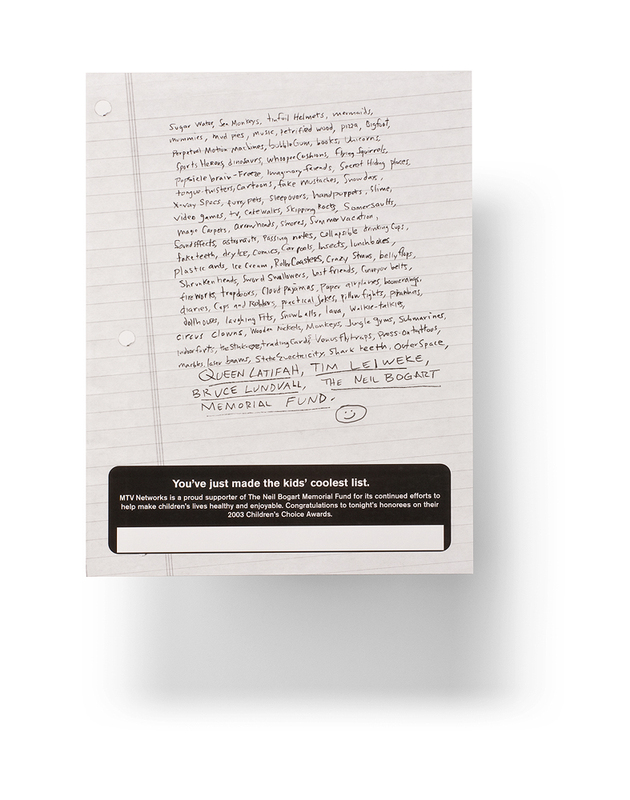 Sugar Water, Sea Monkeys, tinfoil Helmets, mermaids,
mummies, mud pies, music, petrified wood, pizza, Bigfoot,
Perpetual Motion machines, bubble Gum, books, Unicorns,
Sports Heroes, dinosaurs, whooper Cushions, Flying Squirrels,
Popsicle brain-Freeze, Imaginary friends, Secret Hiding places,
tongue-twisters, Cartoons, fake Mustaches, Snowdays,
X-ray Specs, furry pets, sleepovers, hand puppets, Slime,
video games, tv, Catewalks, Skipping Rocks, Somersaults,
Magic Carpets, arrowheads, S'mores, Summer vacation,
Sound effects, astronauts, Passing notes, Collapsible drinking Cups,
fake teeth, dry Ice, Comics, Car pools, Insects, lunchboxes,
plastic ants, Ice Cream, Roller Coasters, Crazy Straws, belly flops,
Shrunken heads, Sword Swallowers, best friends, Conveyor belts,
fireworks, trapdoors, Cloud pajamas, Paper airplanes, boomerangs,
diaries, Cops and Robbers, practical Jokes, pillow fights, Piranhas,
dollhouses, laughing Fits, Snowballs, lava, Walkie-talkies,
circus clowns, Wooden Nickels, Monkeys, Jungle gyms, Submarines,
indoor forts, trading Cards, Venus flytraps, Press-On tattoos,
marbles, laser beams, Static Electricity, Shark teeth, OuterSpace,
QUEEN LATIFAH, TIM LEIWEKE,
BRUCE LUNDVALL, THE NEIL BOGART
MEMORIAL FUND.
You've just made the kids' coolest list.
MTV Networks is a proud supporter of The Neil Bogart Memorial Fund for its continued efforts to
help make children's lives healthy and enjoyable. Congratulations to tonight's honorees on their
2003 Children's Choice Awards.